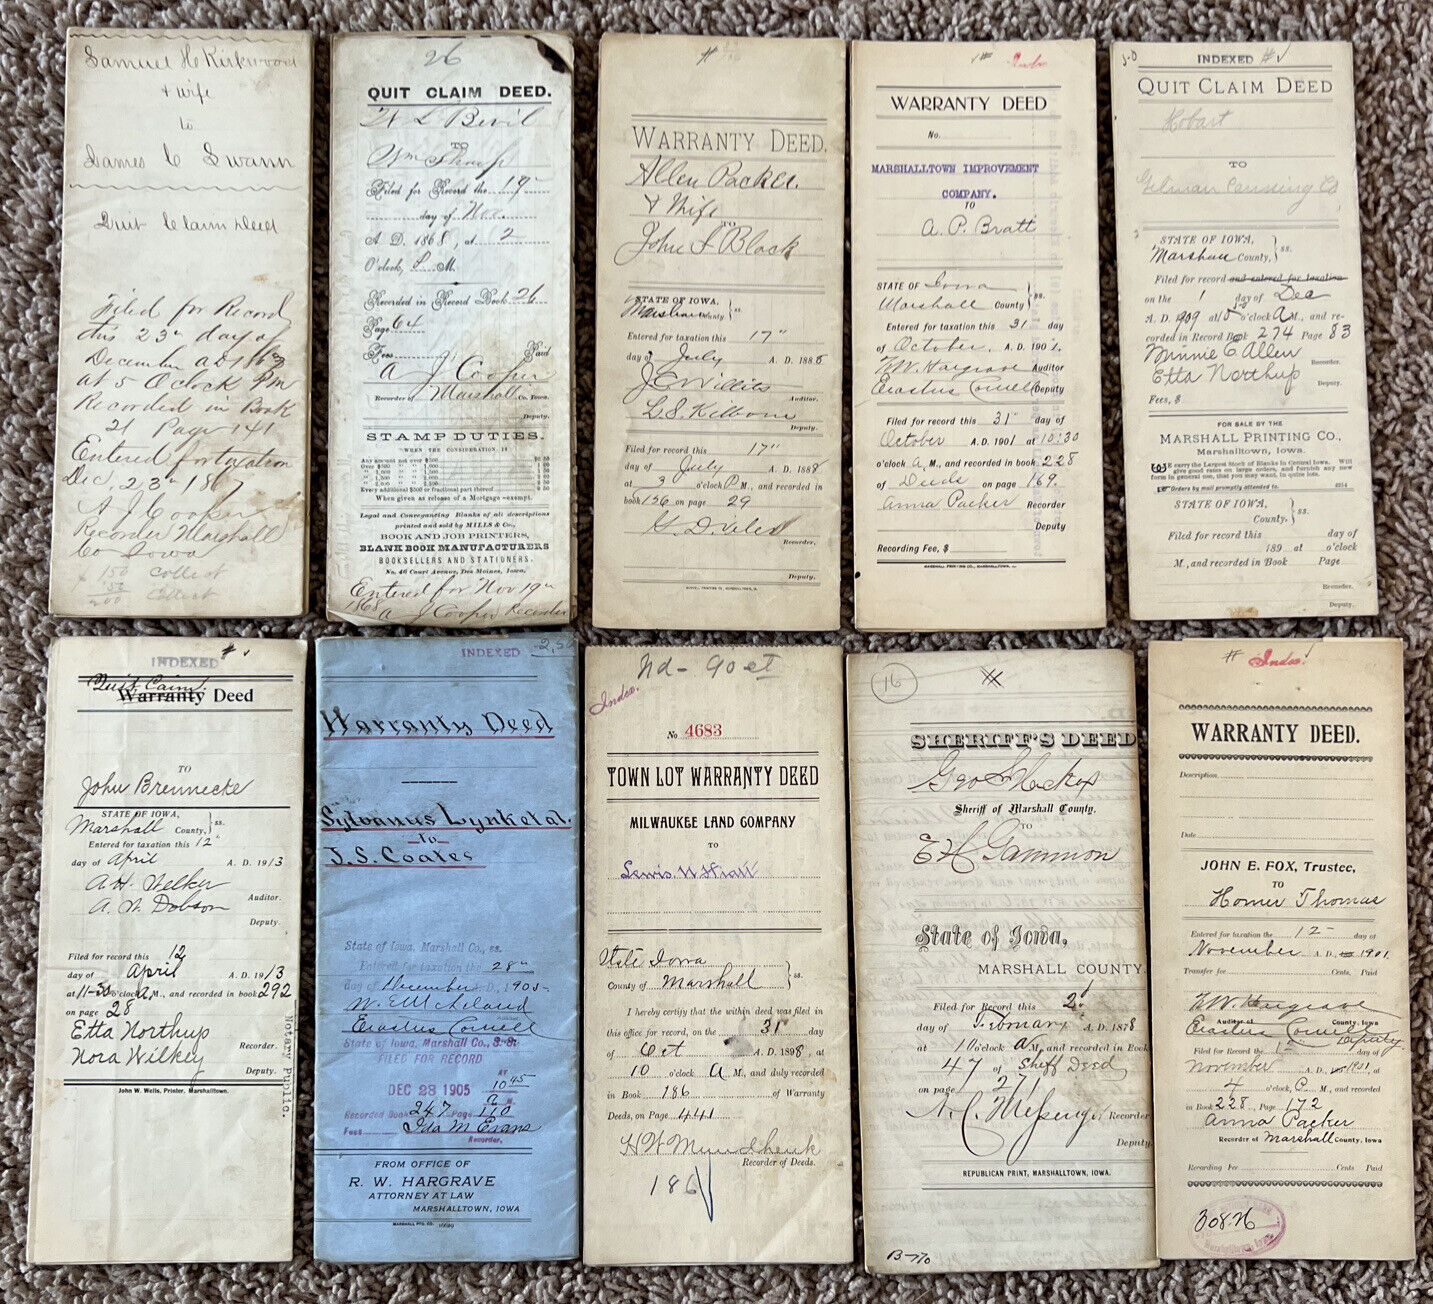 Samuel H Kirkwood
+ wife
to
James C Swann
Quit Claim Deed
Filed for Record
this 23rd day of
December
at 5 O clock P m
Recorded in Book
21 Page 141
Entered for taxation
Dec, 23rd 1867
A J Cooper
Recorder Marshall
Co Iowa
150 Collect
50
200 Collect
26
QUIT CLAIM DEED.
TO
Wm Sharp
Filed for Record the 19th
day of Nov.
A. D. 1868, at 2
O'clock, P. M.
Recorded in Record Book 26
Page 64
Fees, Paid
A J Cooper
Recorder of Marshall Co. Iowa.
Deputy.
STAMP DUTIES.
WHEN THE CONSIDERATION IS
Any amount not over $500
Over $500 " " 1,000
Every additional $500 or fractional part thereof 50
When given as release of a Mortgage—exempt.
Legal and Conveyancing Blanks of all descriptions
printed and sold by MILLS & Co.,
BOOK AND JOB PRINTERS,
BLANK BOOK MANUFACTURERS
BOOKSELLERS AND STATIONERS.
No. 46 Court Avenue, Des Moines, Iowa.
Entered for Nov 19th
1868 A J Cooper Recorder
#
WARRANTY DEED.
Allen Packer.
& Wife
TO
John F Black
STATE OF IOWA,
Marshall County } ss.
Entered for taxation this 17"
day of July A. D. 1888
J C Willits
Auditor.
L. S. Kilborn
Deputy.
Filed for record this 17"
day of July A. D. 1888
at 3 o'clock P. M., and recorded in
book 156 on page 29
Recorder,
Deputy.
1 # Index
WARRANTY DEED
No.
MARSHALLTOWN IMPROVEMENT
COMPANY.
TO
A. P. Bratt
STATE OF Iowa
Marshall County } ss.
Entered for taxation this 31 day
of October, A. D. 1901.
H. W. Hargrave Auditor
Erastus Cowell Deputy
Filed for record this 31" day of
October A. D. 1901 at 10:30
o'clock A M., and recorded in book 228
of Deeds on page 169.
Anna Packer Recorder
Deputy
Recording Fee, $
MARSHALL PRINTING CO., MARSHALLTOWN, IOWA.
J-O INDEXED #✓
QUIT CLAIM DEED
Hobart
TO
Gilman Canning Co
STATE OF IOWA,
Marshall County, } ss.
Filed for record and entered for taxation
on the 1 day of Dec
A. D. 1909 at o'clock A M., and re-
corded in Record Book 274 Page 83
Minnie E Allen
Recorder.
Etta Northup
Deputy.
Fees, $
FOR SALE BY THE
MARSHALL PRINTING CO.,
Marshalltown, Iowa.
WE carry the Largest Stock of Blanks in Central Iowa. Will
give good rates on large orders, and furnish any new
form in general use, that you may want, in quire lots.
Orders by mail promptly attended to. 4254
STATE OF IOWA,
County. } ss.
Filed for record this day of
189 at o'clock
M., and recorded in Book Page
Recorder.
Deputy.
INDEXED # ✓
Quit Caim
Warranty Deed
TO
John Brennecke
STATE OF IOWA,
Marshall County, } ss.
Entered for taxation this 12
day of April A. D. 1913
A. H. Welker
Auditor.
A. W. Dobson
Deputy.
Filed for record this 12
day of April A. D. 1913
at 11-30 o'clock A M., and recorded in book 292
on page 28
Etta Northup
Recorder.
Nora Wilkey
Deputy.
John W. Wells, Printer, Marshalltown.
Notary Public.
INDEXED 2,50
Warranty Deed
Sylvanus Lynk et al.
to
J. S. Coates
State of Iowa, Marshall Co., ss.
Entered for taxation the 28th
day of December A. D., 1905-
Erastus Cowell
State of Iowa, Marshall Co., S.S.
FILED FOR RECORD
DEC 28 1905 AT 10 45 A M.
Recorded Book 247 Page 110
Fees Ida M Evans
Recorder,
FROM OFFICE OF
R. W. HARGRAVE
ATTORNEY AT LAW
MARSHALLTOWN, IOWA
MARSHALL PTG. CO.
Nd - 90 ct
Index.
No 4683
TOWN LOT WARRANTY DEED
MILWAUKEE LAND COMPANY
TO
Lewis N Hiatt
State Iowa
County of Marshall } ss.
I hereby certify that the within deed was filed in
this office for record, on the 31 day
of Oct A. D. 1898, at
10 o'clock A M., and duly recorded
in Book 186 of Warranty
Deeds, on Page 441
Recorder of Deeds.
186
16
SHERIFF'S DEED
Sheriff of Marshall County.
TO
E H Gammon
State of Iowa,
MARSHALL COUNTY.
Filed for Record this 2d
day of February A. D. 1878
at 10 o'clock A M., and recorded in Book
47 of Sheff Deed
on page 271
Recorder
Deputy
REPUBLICAN PRINT, MARSHALLTOWN, IOWA.
B-170
# Index.
WARRANTY DEED.
Description
Date
JOHN E. FOX, Trustee,
TO
Homer Thomas
Entered for taxation the 12- day of
November A. D. 1901
Transfer fee Cents. Paid
H. W. Hargrave
Auditor of County, Iowa
Erastus Cowell Deputy
Filed for Record the 12 day of
November A. D. 1901, at
4 o'clock P. M., and recorded
in Book 228, Page 172
Anna Packer
Recorder of Marshall County, Iowa
Recording Fee Cents Paid
308.26